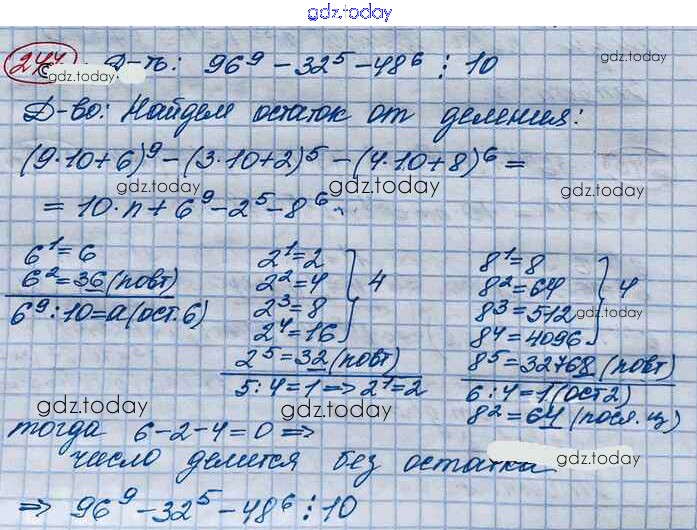 gdz.today
244 gdz.today Д-ть: 96⁹ - 32⁵ - 48⁶ ⋮ 10 gdz.today
Д-во: Найдем остаток от деления:
(9·10+6)⁹ - (3·10+2)⁵ - (4·10+8)⁶ =
gdz.today gdz.today gdz.today
= 10·n + 6⁹ - 2⁵ - 8⁶.
6¹ = 6
6² = 36 (повт)
6⁹ : 10 = a (ост. 6)
gdz.today
2¹ = 2
2² = 4
2³ = 8
2⁴ = 16
4
2⁵ = 32 (повт)
5 : 4 = 1 => 2¹ = 2
gdz.today
8¹ = 8
8² = 64
8³ = 512
8⁴ = 4096
4
gdz.today
8⁵ = 32768 (повт)
6 : 4 = 1 (ост 2)
8² = 64 (посл. ц)
gdz.today gdz.today gdz.today
тогда 6 - 2 - 4 = 0 =>
число делится без остатка gdz.today
=> 96⁹ - 32⁵ - 48⁶ ⋮ 10
gdz.today gdz.today